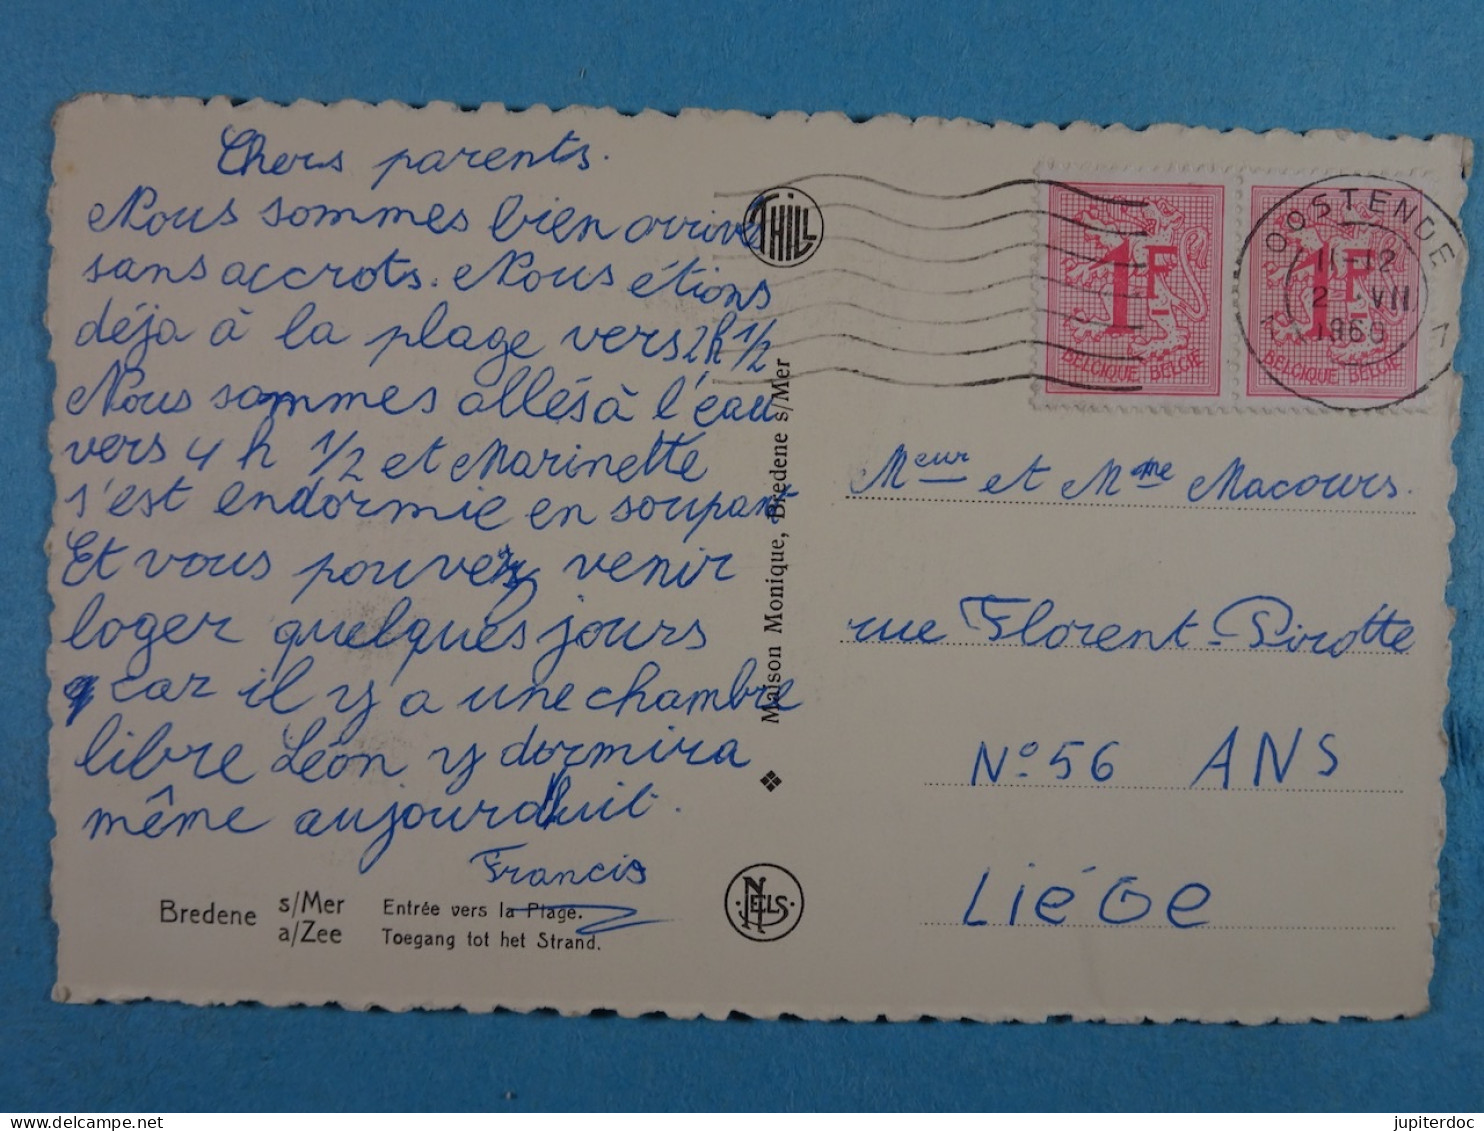 Chers parents.
Nous sommes bien arrivés
sans accrots. Nous étions
déja à la plage vers 2h 1/2
Nous sommes allés à l'eau
vers 4 h 1/2 et Marinette
s'est endormie en soupant
Et vous pouvez venir
loger quelques jours
car il y a une chambre
libre Léon y dormira
même aujourd'huit.
Francis
Bredene s/Mer a/Zee
Entrée vers la Plage.
Toegang tot het Strand.
THILL
Maison Monique, Bredene s/Mer
NELS
1F
BELGIQUE BELGIE
1F
BELGIQUE BELGIE
OOSTENDE
11-12
2 VII
1969
Meur et Mme Macours.
rue Florent-Pirotte
N° 56 ANS
LiéGe
delcampe.net
jupiterdoc